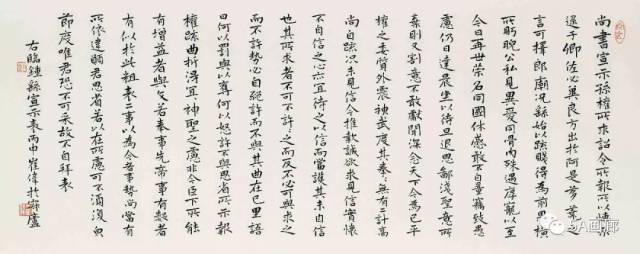 尚書宣示孫權所求詔令所報所以博示
逮于卿佐必冀良方出於阿是芻蕘之
言可擇郎廟況繇始以疏賤得為前恩橫
所盱睨公私見異愛同骨肉殊遇厚寵以至
今日再世榮名同國休慼敢不自量竊致愚
慮仍日達晨坐以待旦退思鄙淺聖意所
棄則又割意不敢獻聞深念天下今為已平
權之委質外震神武度其拳々無有二計高
尚自疏況未見信今推款誠欲求見信實懷
不自信之心亦宜待之以信而當護其未自信
也其所求者不可不許々之而反不必可與求之
而不許勢必自絕許而不與其曲在己里語
曰何以罰與以奪何以怒許不與思省所示報
權疏曲折得宜宜神聖之慮非今臣下所能
有增益昔與文若奉事先帝事有數者
有似於此粗表二事以為今者事勢尚當有
所依違願君思省若以在所慮可不須後自
節度唯君恐不可采故不自拜表
右臨鍾繇宣示表丙申崔偉於廬
5A画廊